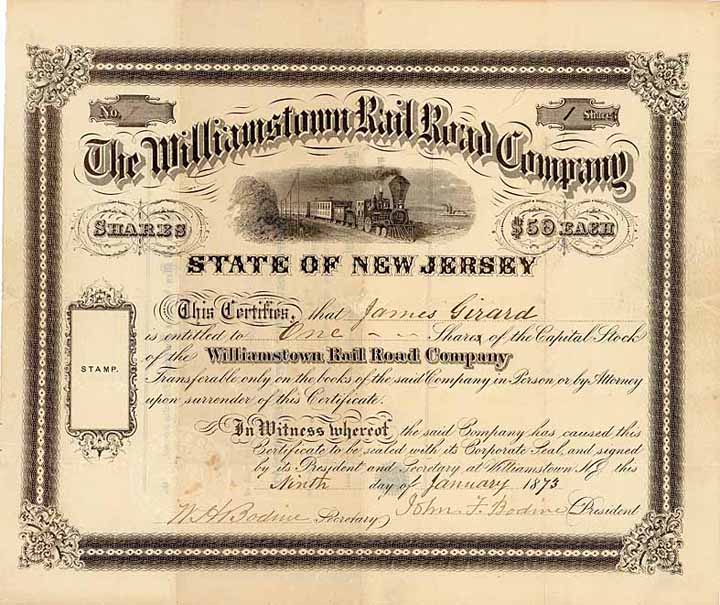 No.
1 Shares
The Williamstown Rail Road Company
SHARES
$50 EACH
STATE OF NEW JERSEY
This Certifies, that James Girard
is entitled to One Shares of the Capital Stock
of the Williamstown Rail Road Company
Transferable only on the books of the said Company in Person or by Attorney
upon surrender of this Certificate.
STAMP.
In Witness whereof the said Company has caused this
Certificate to be sealed with its Corporate Seal, and signed
by its President and Secretary at Williamstown N.J. this
Ninth day of January 1873
W. H. Bodine Secretary John F. Bodine President